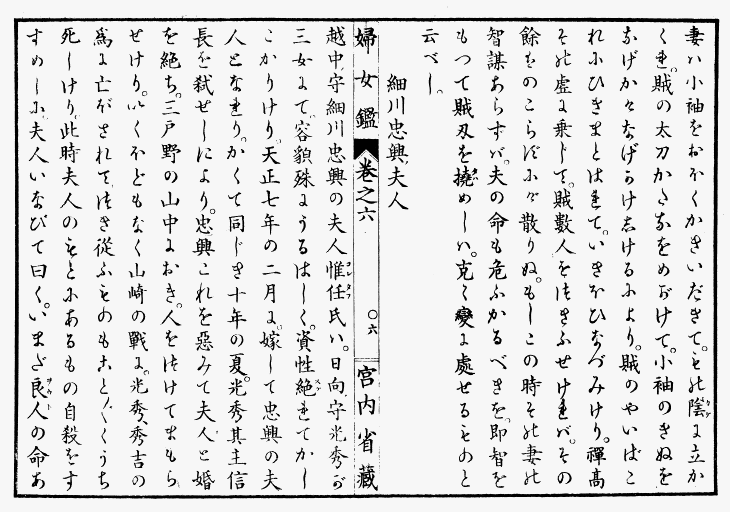 妻ハ小袖をおほくかさいだきて。その陰に立か
くれ。賊の太刀かたなをめがけて。小袖のきぬを
なげかけなげかけ〻けるにより。賊のやいばこ
れにひきまとはれて。いきほひなづみけり。禪高
その虚に乗じて。賊數人をきりふせければ。その
餘ものこらずにげ散りぬ。もしこの時その妻の
智謀あらずバ。夫の命も危ふかるべきを。即智を
もつて賊刃を撓めしハ。克く變に處せるものと
云べし。
細川忠興夫人
婦女鑑 卷之六 〇六 宮内省藏
越中守細川忠興の夫人惟任氏ハ。日向守光秀が
三女にて。容貌殊にうるはしく。資性絶れてかし
こかりけり。天正七年の二月に。嫁して忠興の夫
人となれり。かくて同じき十年の夏。光秀其主信
長を弑せしにより。忠興これを惡みて夫人と婚
を絶ち。三戸野の山中におき。人をつけてまもら
せけり。いくほどもなく山崎の戰に。光秀秀吉の
爲に亡ぼされて。つき從ふものもこと〴〵くうち
死しけり。此時夫人のもとにあるもの自殺をす
すめしに。夫人いなびて曰く。いまだ良人の命あ